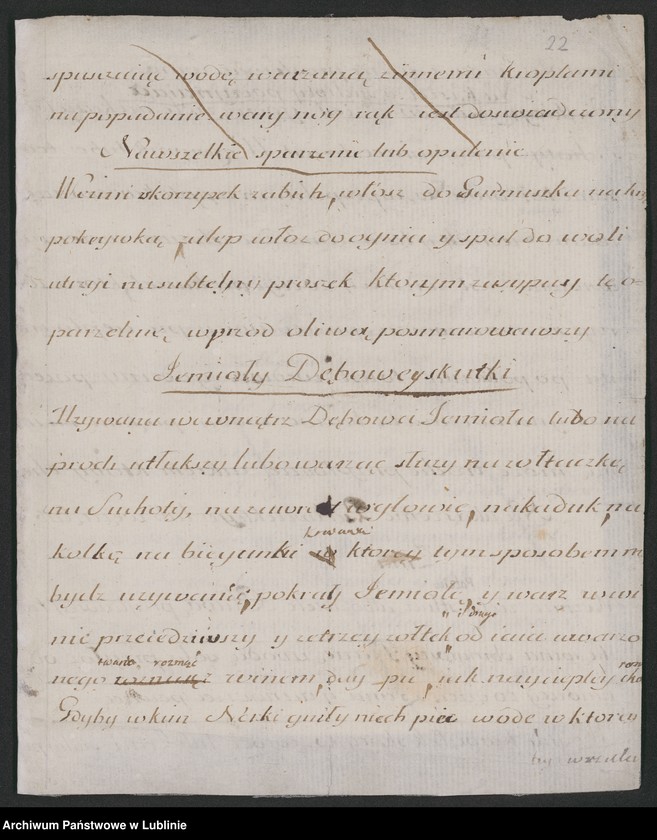 22
spuszczaiąc wodę warzoną zinnemi kroplami
na popadanie wary nóg rąk iest doswiadczony
Nawszelkie sparzenie lub opalenie
Weźmi skorupek żabich, włosz do Garnuszka nakry
pokrywką, zalep włoż do ognia y spal do woli
utrzyi na subtelny proszek ktorym zasypuy tę o-
parzelinę wprzod oliwą posmarowawszy
Jemioły Dębowey skutki
Używana wewnątrz Dębowa Jemioła lubo na
proch utłukszy lubo warząc służy na zołtaczkę
na Suchoty, na zawrot głowie, na kaduk, na
krwawe
kolkę na biegunki ktorey tym sposobem m
bydz używanie, pokray Jemiołę, y warz w wi
nie przecedziwszy y zetrzey zołtek od iaia uwarzo
twardo rozmąć
nego z winem, day pić, iak nayciepley
Gdyby w kim Nerki gniły niech piie wodę w ktorey
by wrzała
Archiwum Państwowe w Lublinie